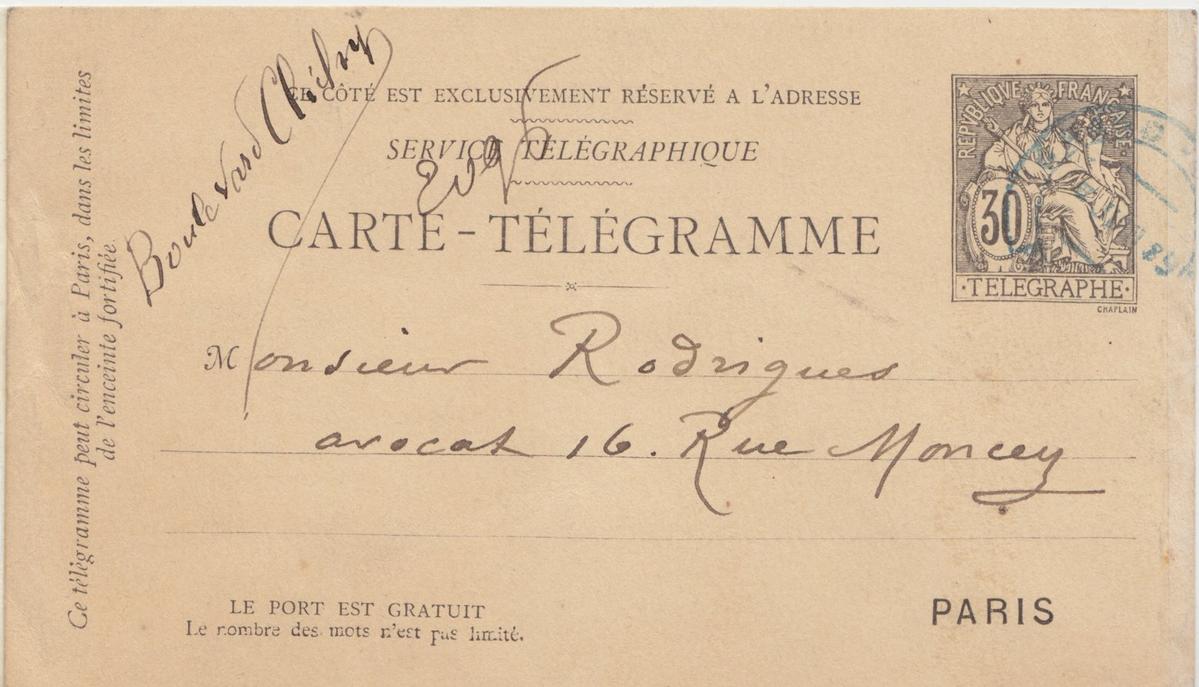 CE CÔTÉ EST EXCLUSIVEMENT RÉSERVÉ A L'ADRESSE
SERVICE TÉLÉGRAPHIQUE
CARTE-TÉLÉGRAMME
REPVBLIQVE FRANÇAISE
30
·TELEGRAPHE·
CHAPLAIN
Boulevard Clichy
Monsieur Rodrigues
avocat 16. Rue Moncey
PARIS
LE PORT EST GRATUIT
Le nombre des mots n'est pas limité.
Ce télégramme peut circuler à Paris, dans les limites
de l'enceinte fortifiée.